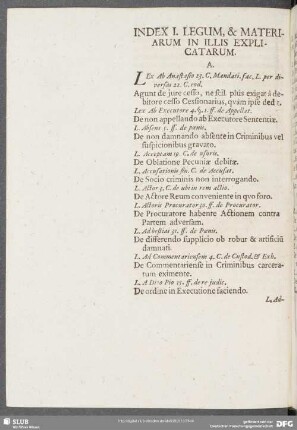 INDEX I. LEGUM, & MATERI-
ARUM IN ILLIS EXPLI-
CATARUM.
A.
LEx Ab Anastasio 23. C. Mandati. fac, L. per di-
versas 22. C. eod.
Agunt de jure cesso, ne scil. plus exigat à de-
bitore cesso Cessionarius, qvàm ipse ded t.
Lex Ab Executore 4. §. 1. ff. de Appellat.
De non appellando ab Executore Sententiæ.
L. Absens 5. ff. de pœnis.
De non damnando absente in Criminibus vel
suspicionibus gravato.
L. Acceptam 19. C. de usuris.
De Oblatione Pecuniæ debitæ.
L. Accusationis fin. C. de Accusat.
De Socio criminis non interrogando.
L. Actor 3. C. de ubi in rem actio.
De Actore Reum conveniente in qvo foro.
L. Actoris Procurator de Procurator.
De Procuratore habente Actionem contra
Partem adversam.
L. Ad bestias 31. ff. de Pœnis.
De differendo supplicio ob robur & artificiũ
damnati.
L. Ad Commentariensem 4. C. de Custod. & Exh.
De Commentariense in Criminibus carcera-
tum eximente.
L. A Divo Pio 15. ff. de re judic.
De ordine in Executione faciendo.
L. Ad-
SLUB
DFG